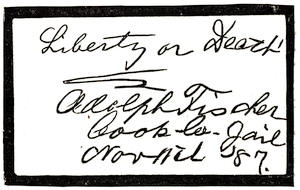 Liberty or Death!
Adolph Fischer
Cook Co. Jail
Nov 11th '87.